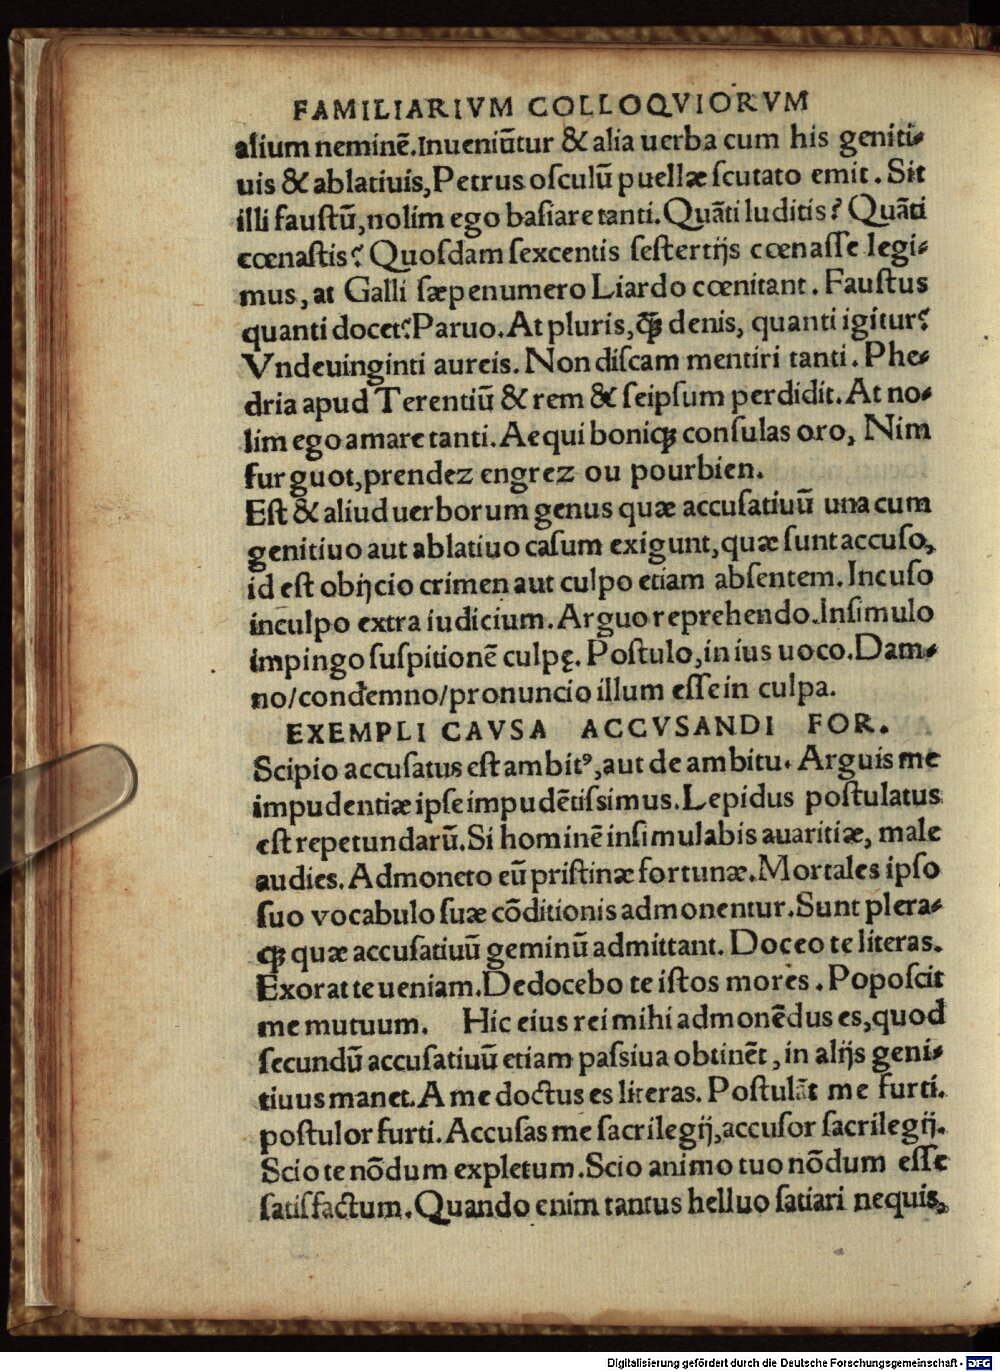 FAMILIARIVM COLLOQVIORVM
alium neminē.Inueniūtur & alia uerba cum his geniti⸗
uis & ablatiuis,Petrus osculū puellæ scutato emit. Sit
illi faustū,nolim ego basiare tanti.Quāti luditis? Quāti
cœnastis? Quosdam sexcentis sestertijs cœnasse legi⸗
mus, at Galli sæpenumero Liardo cœnitant. Faustus
quanti docet?Paruo. At pluris, ꝙ̃ denis, quanti igitur?
Vndeuinginti aureis. Non discam mentiri tanti. Phe⸗
dria apud Terentiū & rem & seipsum perdidit. At no⸗
lim ego amare tanti. Aequi boniqꝫ consulas oro, Nim
fur guot,prendez engrez ou pourbien.
Est & aliud uerborum genus quæ accusatiuū una cum
genitiuo aut ablatiuo casum exigunt,quæ sunt accuso,
id est obijcio crimen aut culpo etiam absentem. Incuso
inculpo extra iudicium. Arguo reprehendo.Insimulo
impingo suspitionē culpę. Postulo,in ius uoco.Dam⸗
no/condemno/pronuncio illum esse in culpa.
EXEMPLI CAVSA ACCVSANDI FOR.
Scipio accusatus est ambitꝰ,aut de ambitu. Arguis me
impudentiæ ipse impudētissimus.Lepidus postulatus
est repetundarū.Si hominē insimulabis auaritiæ, male
audies. Admoneto eū pristinæ fortunæ.Mortales ipso
suo vocabulo suæ cōditionis admonentur.Sunt plera⸗
qꝫ quæ accusatiuū geminū admittant. Doceo te literas.
Exorat te ueniam.Dedocebo te istos mores. Poposcit
me mutuum. Hic eius rei mihi admonēdus es,quod
secundū accusatiuū etiam passiua obtinēt, in alijs geni⸗
tiuus manet. A me doctus es literas. Postulāt me furti.
postulor furti. Accusas me sacrilegij,accusor sacrilegij.
Scio te nōdum expletum.Scio animo tuo nōdum esse
satisfactum.Quando enim tantus helluo satiari nequis,
Digitalisierung gefördert durch die Deutsche Forschungsgemeinschaft - DFG